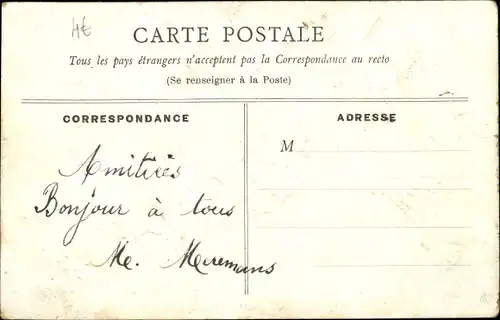 4€
CARTE POSTALE
Tous les pays étrangers n'acceptent pas la Correspondance au recto
(Se renseigner à la Poste)
CORRESPONDANCE
ADRESSE
M
Amitiés
Bonjour à tous
Me. Meremans